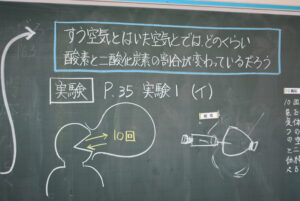 すう空気とはいた空気とでは、どのくらい
酸素と二酸化炭素の割合が変わっているだろう
実験 P.35 実験1 (イ)
10回